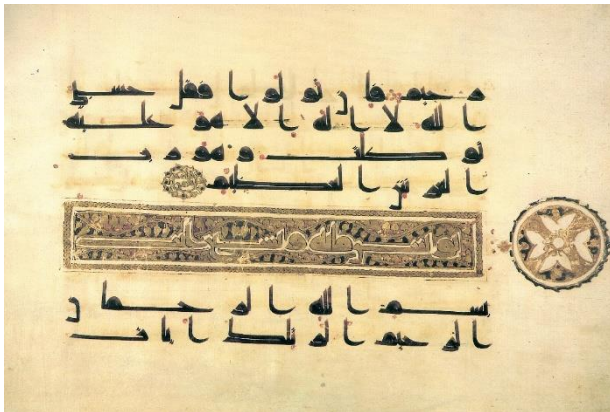 رحيم فان تولوا فقل حسبي
الله لا اله الا هو عليه
توكلت وهو رب
العرش العظيم
يونس مايه وتسع ايات
بسم الله الرحمن
الرحيم الر تلك ايات